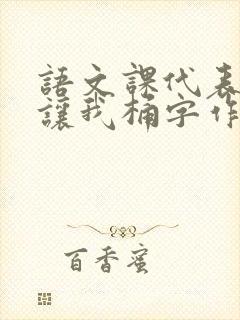 語文課代表
讓我桶字作
百香蜜